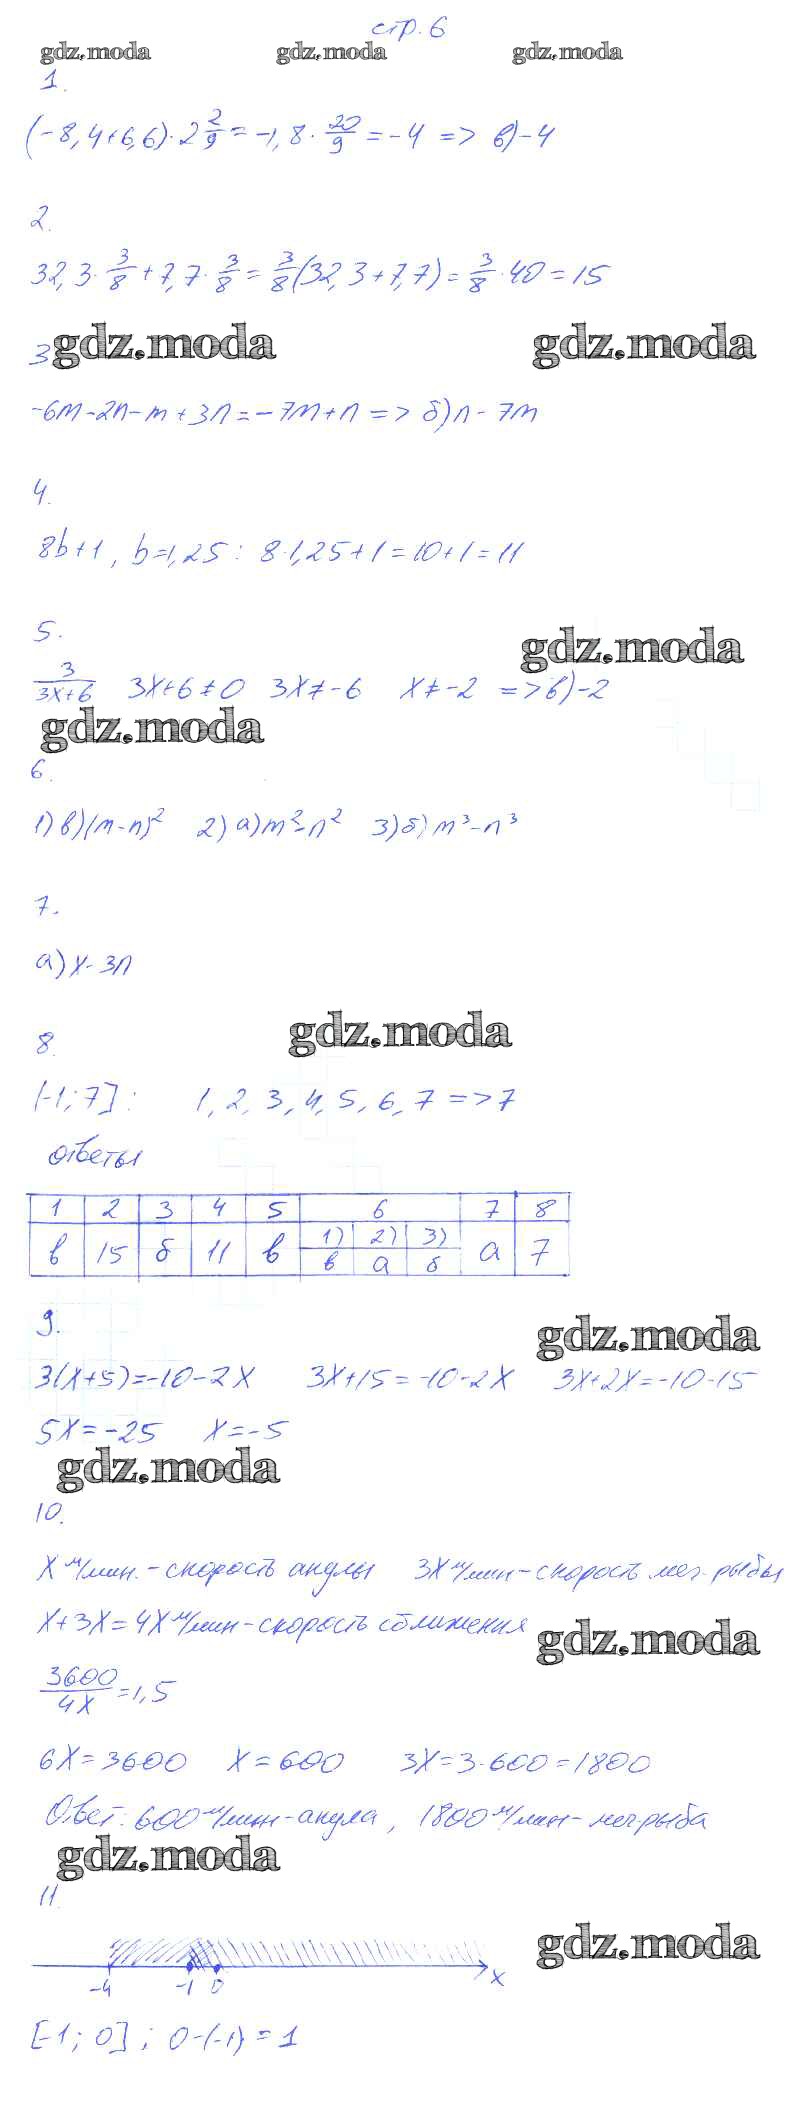 стр. 6
gdz.moda gdz.moda gdz.moda
1.
(-8,4+6,6)·2 2/9 = -1,8 · 20/9 = -4 => в) -4
2.
32,3 · 3/8 + 7,7 · 3/8 = 3/8 (32,3 + 7,7) = 3/8 · 40 = 15
3 gdz.moda gdz.moda
-6m-2n-m+3n = -7m+n => б) n-7m
4.
8b+1, b=1,25: 8·1,25+1=10+1=11
5.
gdz.moda
3/(3x+6) 3x+6≠0 3x≠-6 x≠-2 => в) -2
gdz.moda
6.
1) в) (m-n)² 2) а) m²-n² 3) б) m³-n³
7.
а) x-3n
gdz.moda
8.
[-1; 7]: 1, 2, 3, 4, 5, 6, 7 => 7
ответы
1 2 3 4 5 6 7 8
в 15 б 11 в 1) 2) 3) а 7
в а б
9.
gdz.moda
3(x+5)=-10-2x 3x+15=-10-2x 3x+2x=-10-15
5x=-25 x=-5
gdz.moda
10.
x м/мин. - скорость акулы 3x м/мин - скорость меч-рыбы
x+3x=4x м/мин - скорость сближения
gdz.moda
3600/4x = 1,5
6x=3600 x=600 3x=3·600=1800
Ответ: 600 м/мин - акула, 1800 м/мин - меч-рыба
gdz.moda
11.
gdz.moda
-4 -1 0 x
[-1; 0]; 0-(-1)=1